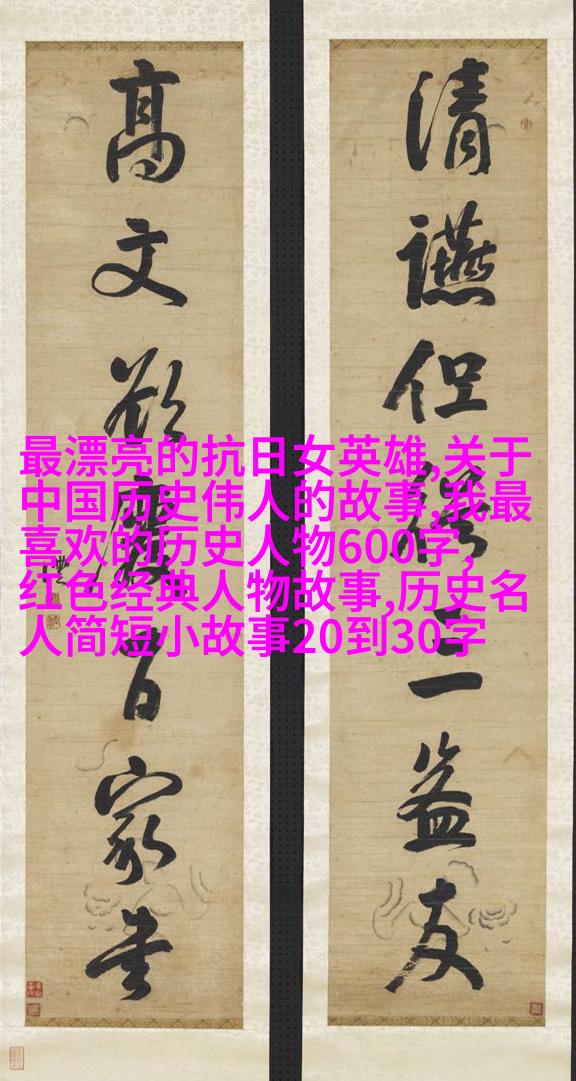 清讌但三益友
高文欲廢百家書
最漂亮的抗日女英雄,关于
中国历史伟人的故事,我最
喜欢的历史人物600字,
红色经典人物故事,历史名
人简短小故事20到30字